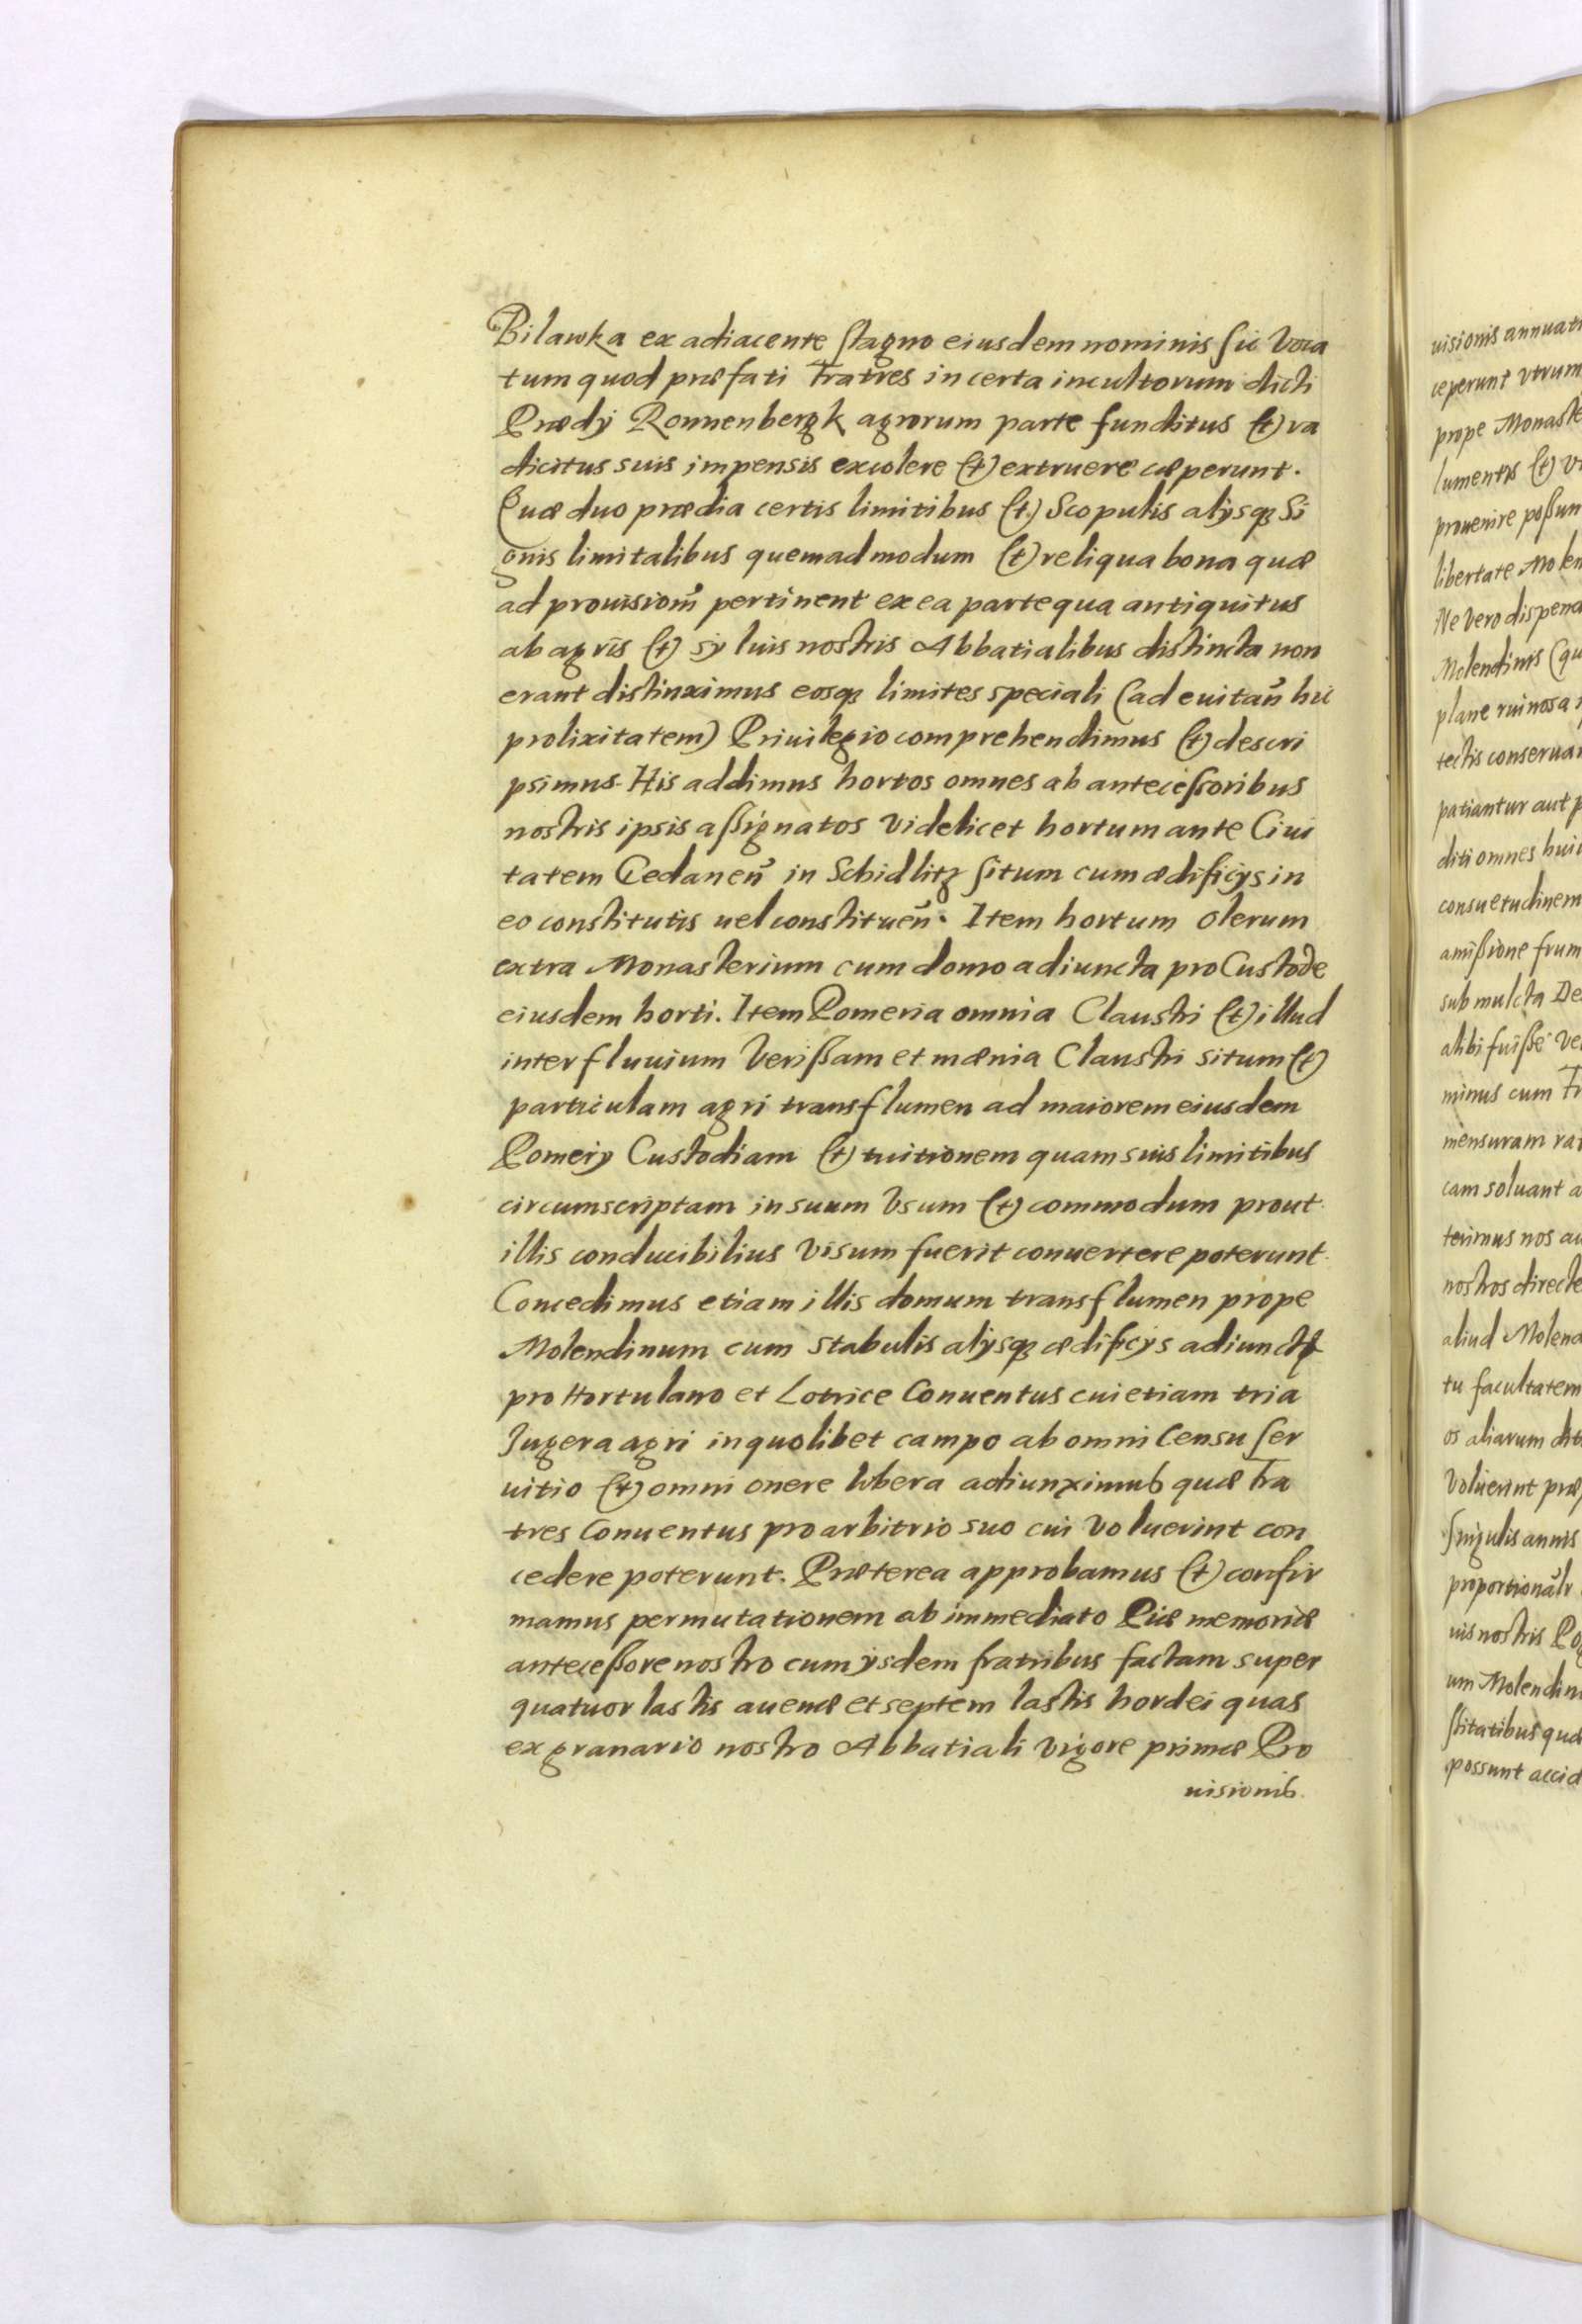 Bilawka ex adiacente stagno eiusdem nominis sic Voca
tum quod præfati Fratres in certa incultorum dicti
Prædij Ronnenbergk agrorum parte funditus (et) ra
dicitus suis impensis excolere (et) extruere cæperunt.
Quæ duo prædia certis limitibus (et) Scopulis alijsq3 Si
gnis limitalibus quemadmodum (et) reliqua bona quæ
ad prouisiom̃ pertinent ex ea parte qua antiquitus
ab agris (et) syluis nostris Abbatialibus distincta non
erant distinximus eosq3 limites speciali (ad euitañ hic
prolixitatem) Priuilegio comprehendimus (et) descri
psimus. His addimus hortos omnes ab antecessoribus
nostris ipsis assignatos Videlicet hortum ante Ciui
tatem Gedaneñ in Schidlitz situm cum ædificijs in
eo constitutis uel constitueñ. Item hortum olerum
extra Monasterium cum domo adiuncta pro Custode
eiusdem horti. Item Pomeria omnia Claustri (et) illud
inter fluuium Verissam et mænia Claustri situm (et)
particulam agri trans flumen ad maiorem eiusdem
Pomerij Custodiam (et) tuitionem quam suis limitibus
circumscriptam in suum Vsum (et) commodum prout
illis conducibilius Visum fuerit conuertere poterunt.
Concedimus etiam illis domum trans flumen prope
Molendinum cum stabulis alijsq3 ædificijs adiunctis
pro Hortulano et Lotrice Conuentus cui etiam tria
Jugera agri in quolibet campo ab omni Censu ser
uitio (et) omni onere libera adiunximus quæ Fra
tres Conuentus pro arbitrio suo cui Voluerint con
cedere poterunt. Præterea approbamus (et) confir
mamus permutationem ab immediato Piæ memoriæ
antecessore nostro cum ijsdem fratribus factam super
quatuor lastis auenæ et septem lastis hordei quas
ex granario nostro Abbatiali Vigore primæ Pro
uisionis.
uisionis annuati
ceperunt vtrum
prope Monaste
lumentis (et) vt
prouenire possun
libertate Molen
Ne Vero dispend
Molendinis (qu
plane ruinosa
tectis conseruar
patiantur aut p
diti omnes huiu
consuetudinem
amissione frum
sub mulcta De
alibi fuisse Ve
minus cum Fr
mensuram rat
cam soluant a
terimus nos au
nostros directe
aliud Molend
tu facultatem
os aliarum dit
Voluerint præ
singulis annis
proportionalr
uis nostris Po
um Molendin
stitatibus quæ
possunt accid